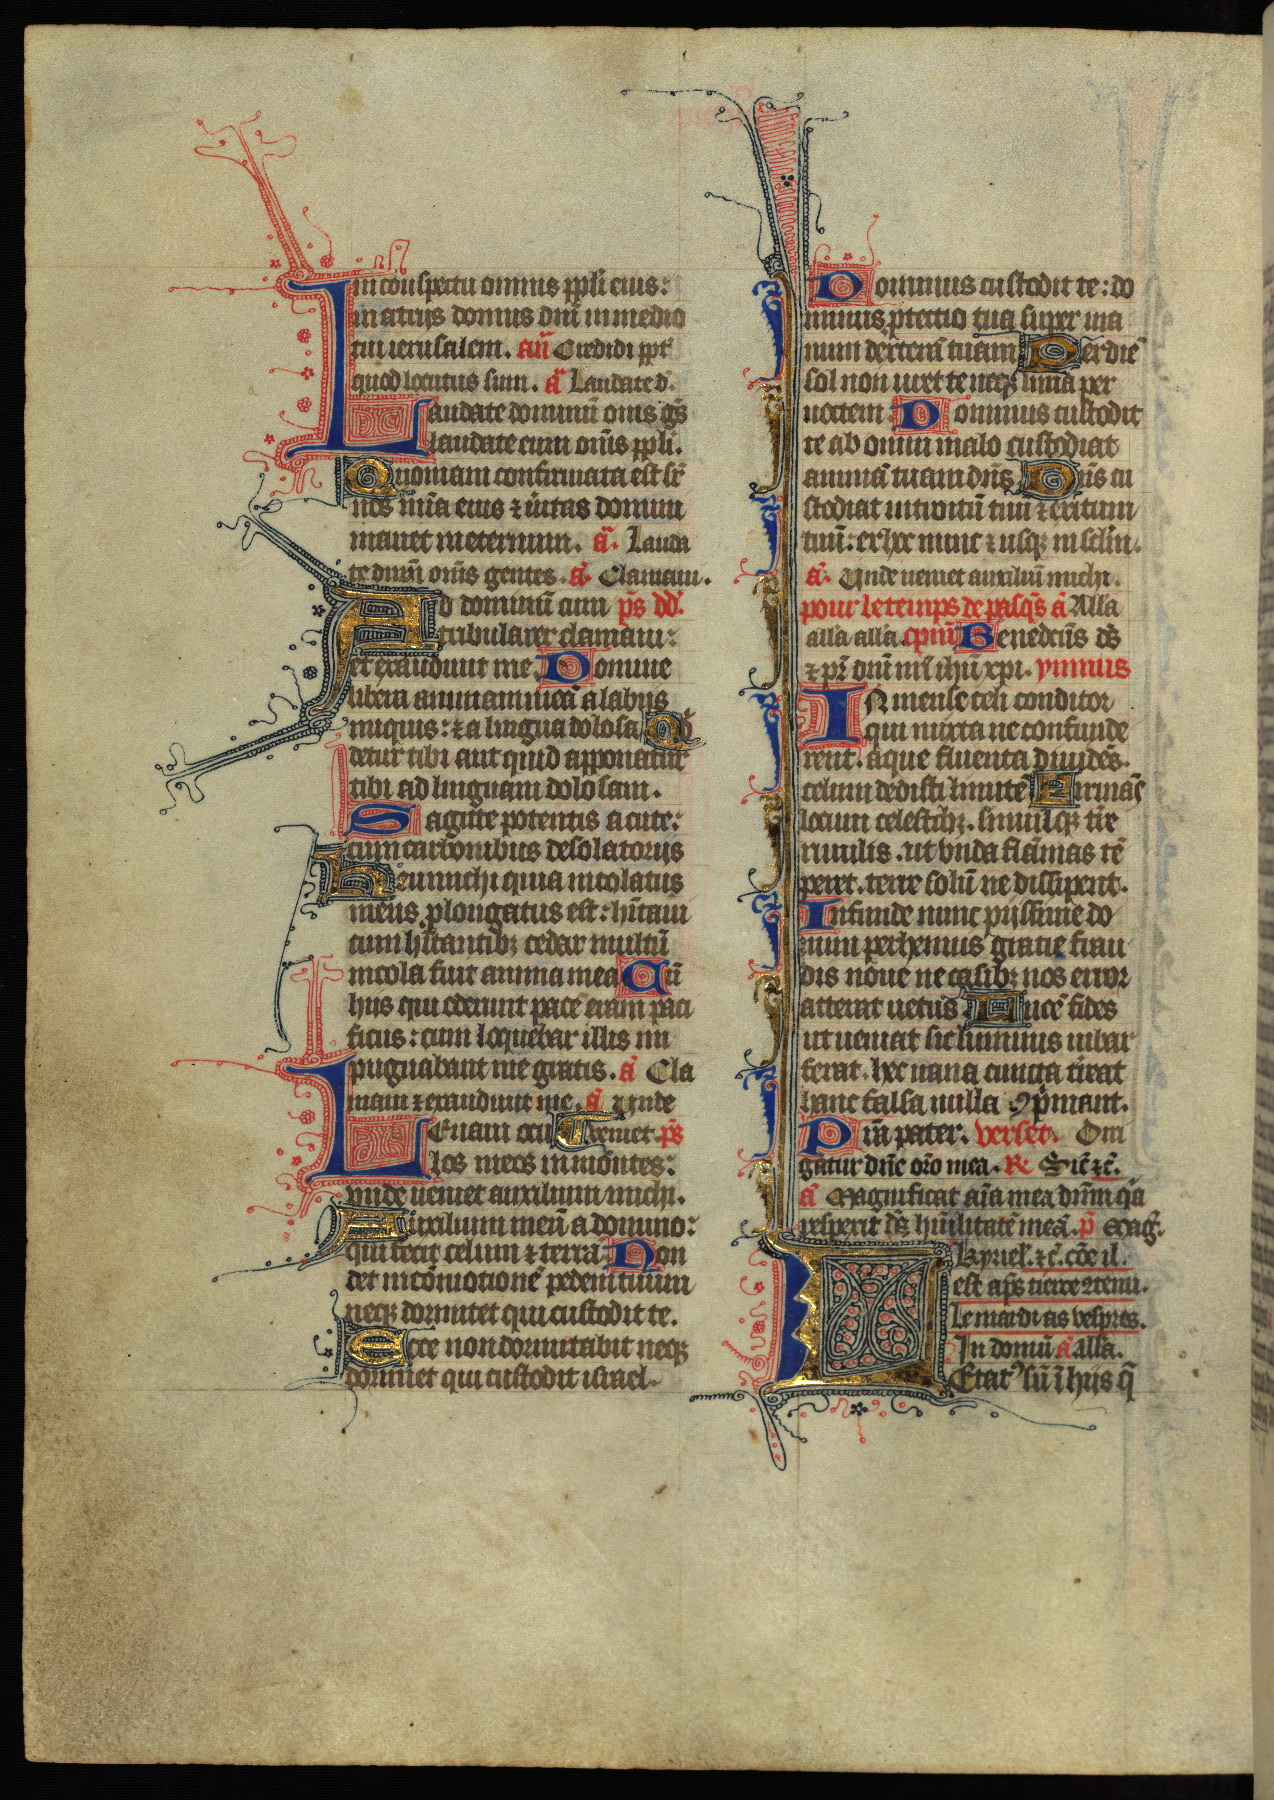 in conspectu omnis ppli eius:
in atrijs domus dni in medio
tui ierusalem. añ Credidi ppt̕
quod locutus sum. a᷈ Laudate d.
Laudate dominū omēs gēs
laudate eum omēs ppli.
Quoniam confirmata est sr̄
nos mīa eius ⁊ ūitas domini
manet in eternum. a᷈. Lauda
te dnm omēs gentes. a᷈. Clamaui.
Ad dominū cum p̄s dd̄.
tribularer clamaui:
et exaudiuit me Domine
libera animam meā a labijs
iniquis: ⁊ a lingua dolosa Qⁱd
detur tibi aut quid apponatur
tibi ad linguam dolosam.
Sagitte potentis acute:
cum carbonibus desolatorijs
Heu michi quia incolatus
meus plongatus est: hītaui
cum hītantibꝫ cedar multū
incola fuit anima mea Cū
hijs qui oderunt pacē eram paci
ficus: cum loquebar illis im
pugnabant me gratis. a᷈ Cla
maui ⁊ exaudiuit me. a᷈ Unde
Leuaui ocu ueniet. p̄s
los meos in montes:
vnde ueniet auxilium michi.
Auxilium meū a domino:
qui fecit celum ⁊ terrā Non
det in cōmotionē pedem tuum
neqꝫ dormitet qui custodit te.
Ecce non dormitabit neqꝫ
dormiet qui custodit israel.
Dominus custodit te: do
minus ptectio tua super ma
num dexterā tuam Per diē
sol non uret te neqꝫ luna per
noctem. Dominus custodit
te ab omni malo custodiat
animā tuam dn̄s Dn̄s cu
stodiat introitū tuū ⁊ exitum
tuū: ex hoc nunc ⁊ usqꝫ in sclm̄.
a᷈. Unde ueniet auxiliū michi.
pour le temps de pasqs̄ a᷈ Alla
alla alla. cpitm̄ Benedictꝰ ds̄
⁊ pr̄ dnī nr̄i ihū xpi. ymnus
Inmense celi conditor
qui mixta ne confunde
rent. aque fluenta diuidēs.
celum dedisti limitē Firmās
locum celestibꝫ. simulqꝫ tr̄re
riuulis. ut vnda flāmas tē
peret. terre solū ne dissipent.
Infunde nunc pijssime do
num perhennis gratie frau
dis noue ne casibꝫ nos error
atterat uetus Lucē fides
ut ueniat sic luminis iubar
ferat. hec uana cuncta t̄reat
hanc falsa nulla ꝯp̄mant.
Pr̄ia pater. verset. Diri
gatur dn̄e or̄o mea. ℟ Sic̄ ⁊c̄.
a᷈ Magnificat aīa mea dnm̄ qⁱa
respexit ds̄ hūilitatē meā. p̄ Mag.
Kyriel. ⁊c̄. cōe il
est aps̄ tierce ⁊ tenu.
Le mardi as vespres.
In domū a᷈ alla.
Letatꝰ sū ī hijs q̄